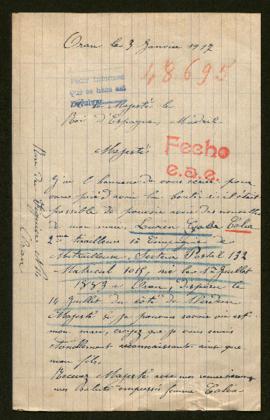 Oran le 3 Janvier 1917
48695
Pedir informes
que se hará así
Sa Majesté le
Roi d'Espagne, Madrid
Fecho
e.a.e.
Majesté
J'ai l'honneur de vous écrire pour
vous prié d'avoir la bonté si c'était
possible de pouvoir avoir des nouvelles
de mon mari, Lucien Ealea
2me tirailleurs Compagnie de
Mitrailleuse, Secteur Postal 132
Matricul 1015, né le 12 Juillet
1883 à Oran, disparu le
14 Juillet du côté de Verdun
Majesté si je pouvais savoir où est
mon mari, croyez que je vous serais
éternellement reconnaissante ainsi que
mon fils.
Recevez Majesté avec mes remerciements
mes Saluts empressés femme Ealea
Rue de
Oran